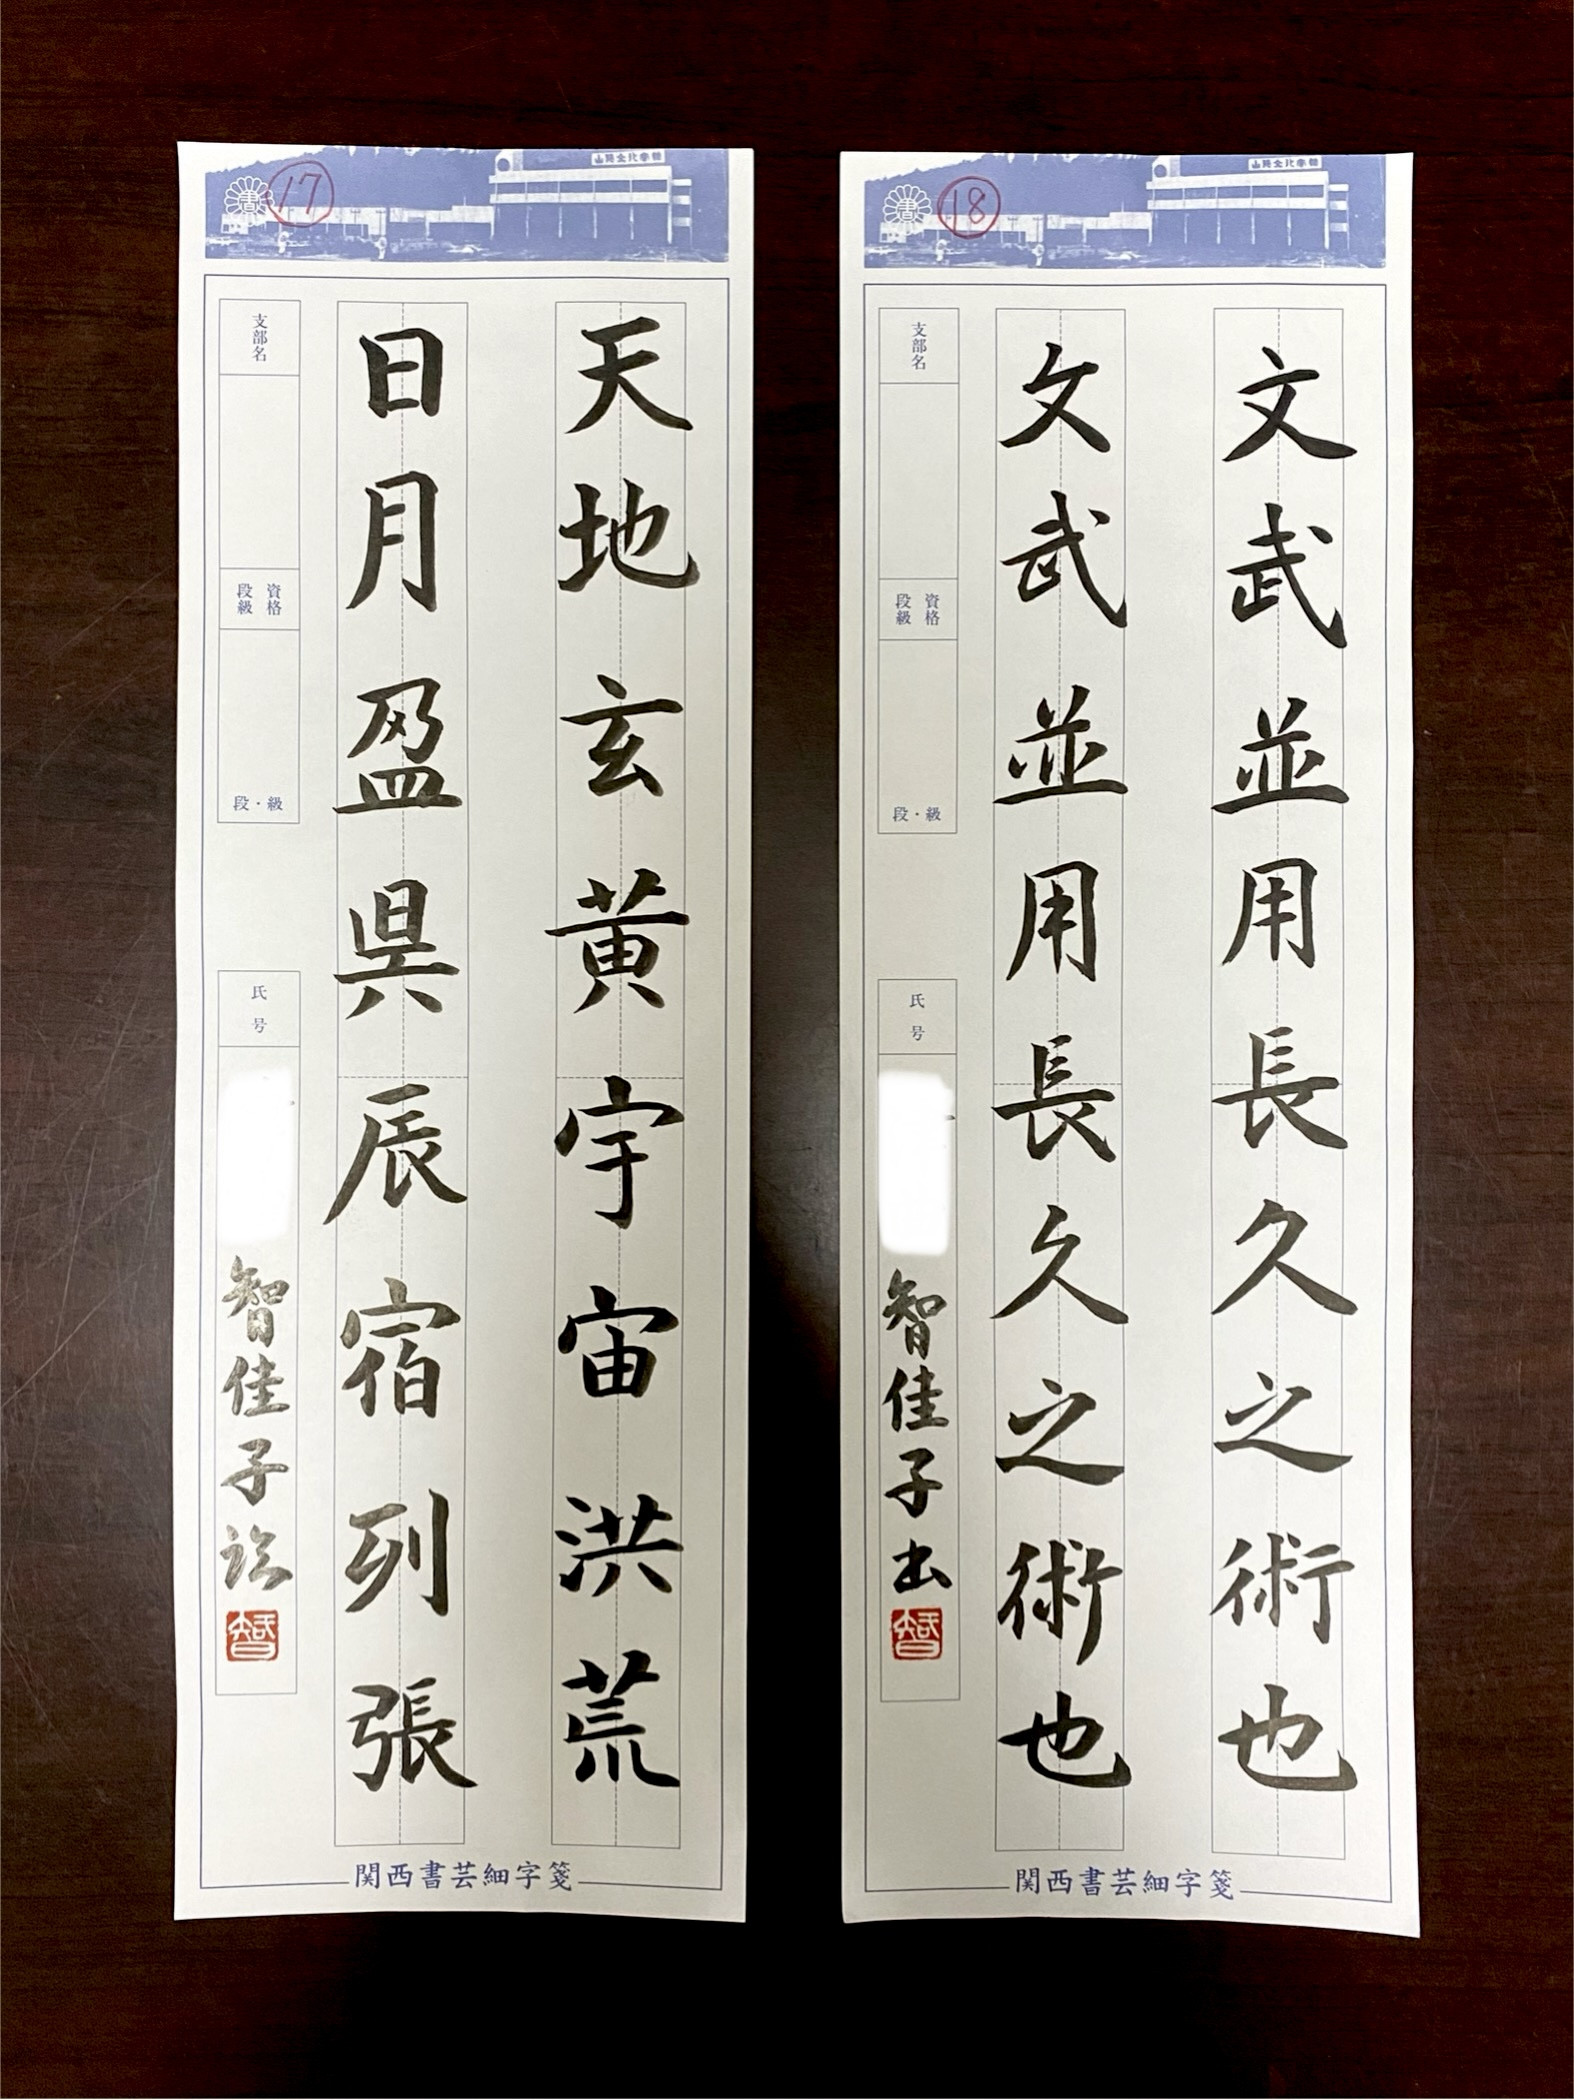 書
17
天地玄黄宇宙洪荒
日月盈昃辰宿列張
支部名
資格
段級
段・級
氏号
智佳子
智
関西書芸細字箋
書
18
文武並用長久之術也
文武並用長久之術也
支部名
資格
段級
段・級
氏号
智佳子出
智
関西書芸細字箋